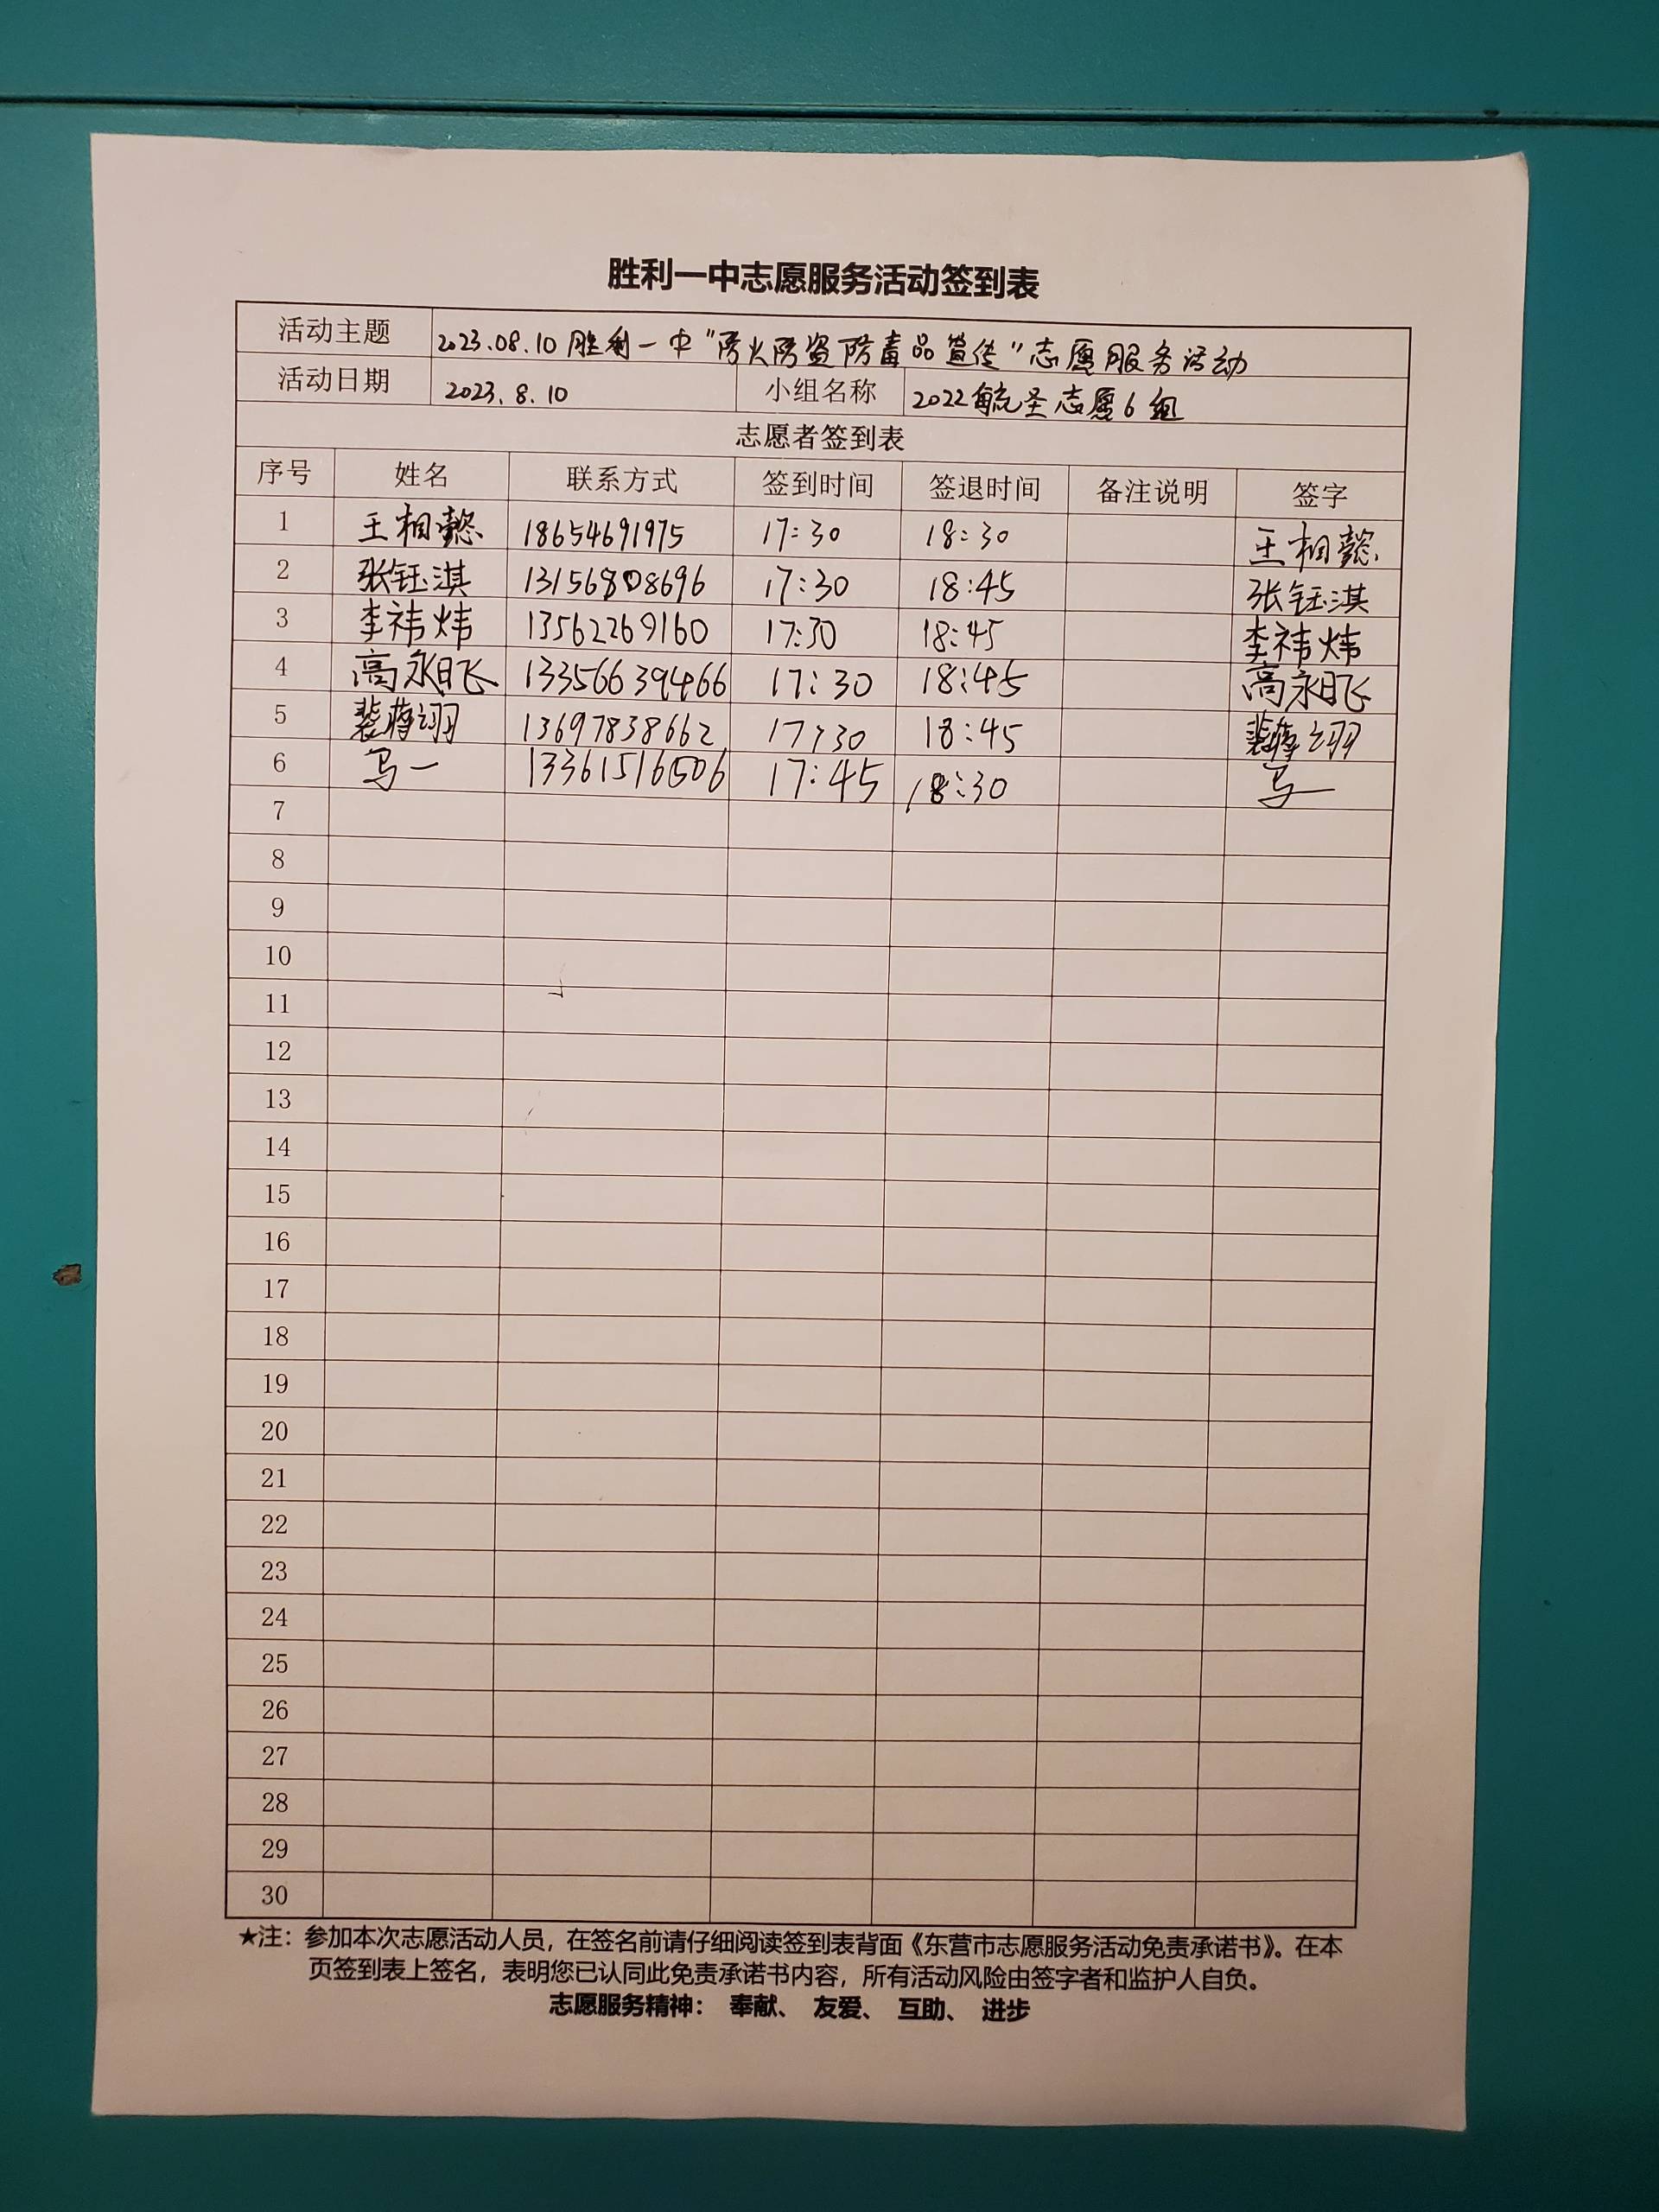 胜利一中志愿服务活动签到表
活动主题 2023.08.10 胜利一中“防火防盗防毒品宣传”志愿服务活动
活动日期 2023.8.10 小组名称 2022毓圣志愿6组
志愿者签到表
序号 姓名 联系方式 签到时间 签退时间 备注说明 签字
1 王相懿 18654691975 17:30 18:30 王相懿
2 张钰淇 13156808696 17:30 18:45 张钰淇
3 李祎炜 13562269160 17:30 18:45 李祎炜
4 高永飞 13356639466 17:30 18:45 高永飞
5 裴蒋翊 13697838662 17:30 18:45 裴蒋翊
6 马一 13361516506 17:45 18:30 马一
7
8
9
10
11
12
13
14
15
16
17
18
19
20
21
22
23
24
25
26
27
28
29
30
★注：参加本次志愿活动人员，在签名前请仔细阅读签到表背面《东营市志愿服务活动免责承诺书》。在本
页签到表上签名，表明您已认同此免责承诺书内容，所有活动风险由签字者和监护人自负。
志愿服务精神： 奉献、 友爱、 互助、 进步